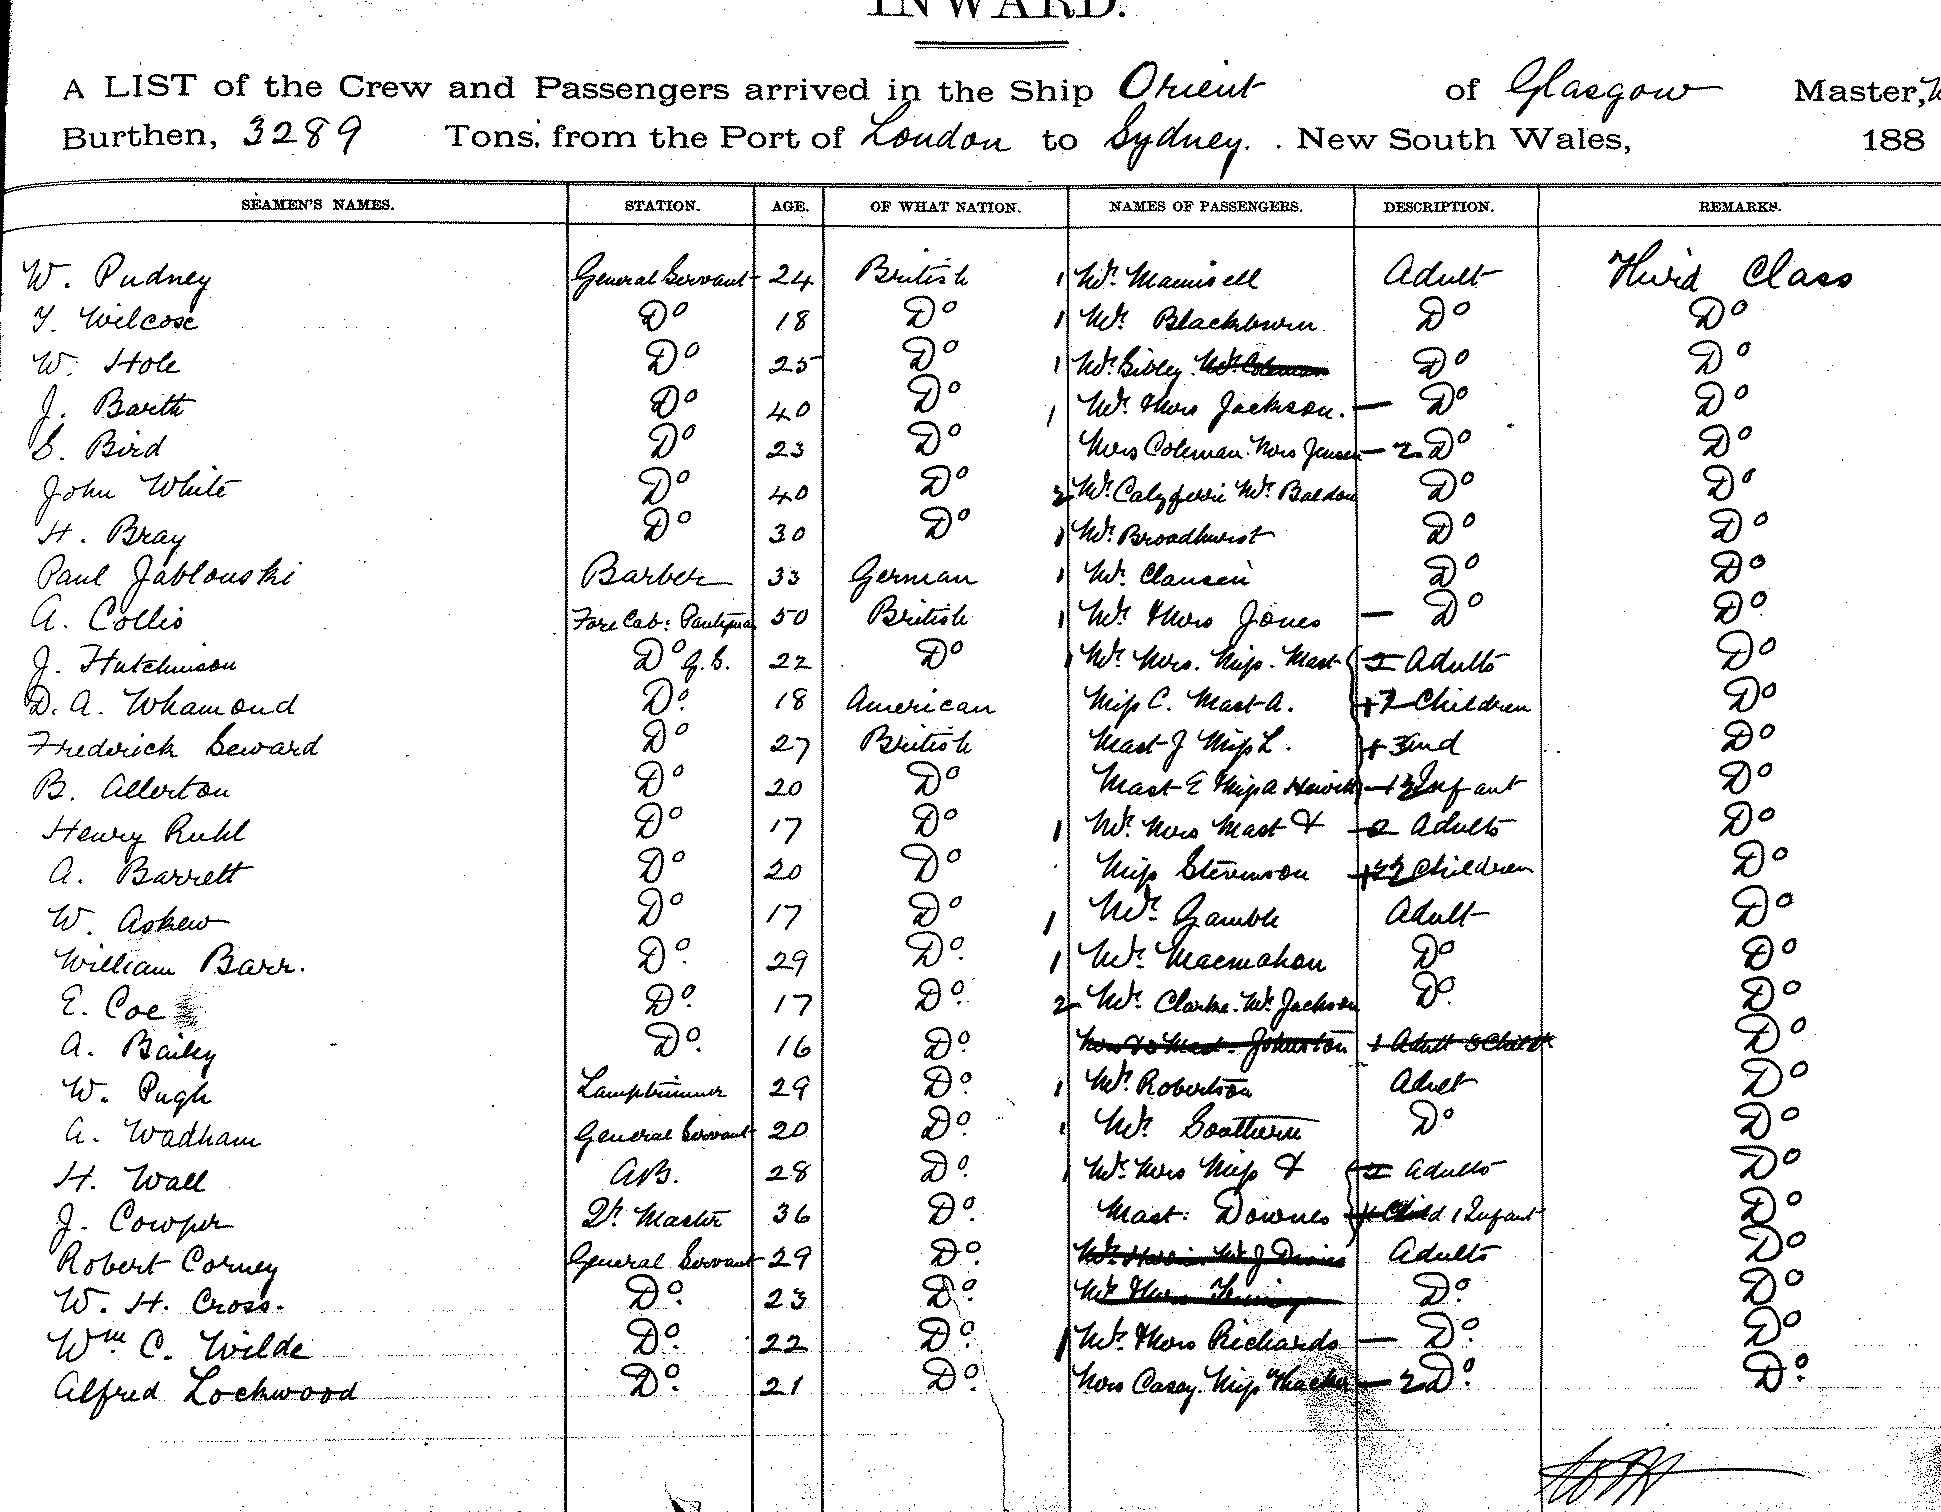 INWARD.
A LIST of the Crew and Passengers arrived in the Ship Orient of Glasgow Master,
Burthen, 3289 Tons, from the Port of London to Sydney. New South Wales, 188
SEAMEN'S NAMES. STATION. AGE. OF WHAT NATION. NAMES OF PASSENGERS. DESCRIPTION. REMARKS.
W. Pudney General Servant 24 British 1 Mr. Adult Third Class
Y. Wilcose Do 18 Do 1 Mr. Blackburn Do Do
W. Hole Do 25 Do 1 Mr. Sibley Mr. Coleman Do Do
J. Barth Do 40 Do 1 Mr. & Mrs Jackson. — Do Do
E. Bird Do 23 Do Mrs Coleman. Mrs Jensen — 2 Do Do
John White Do 40 Do 2 Mr. Mr. Baldon Do Do
H. Bray Do 30 Do 1 Mr. Broadhurst Do Do
Paul Jablonski Barber 33 German 1 Mr. Clausen Do Do
A. Collis Fore Cab: 50 British 1 Mr. & Mrs Jones — Do Do
J. Hutchinson Do G.S. 22 Do 1 Mr. Mrs. Miss. Mast 2 Adults Do
D. A. Whamond Do. 18 American Miss C. Mast A. + Children Do
Frederick Seward Do 27 British Mast J Miss L. + and Do
B. Allerton Do 20 Do Mast E & Miss A Infant Do
Henry Ruhl Do 17 Do 1 Mr. Mrs Mast & 2 Adults Do
A. Barrett Do 20 Do Miss Stevenson + Children Do
W. Askew Do 17 Do 1 Mr. Gamble Adult Do
William Barr. Do. 29 Do. 1 Mr. Macmahon Do Do
E. Coe Do. 17 Do. 2 Mr. Clarke. Mr. Jackson Do. Do
A. Bailey Do. 16 Do. Mast. Johnston 1 Adult Do
W. Pugh Lamptrimmer 29 Do. 1 Mr. Robertson Adult Do
A. Wadham General Servant 20 Do. 1 Mr. Southern Do Do
H. Wall A.B. 28 Do. 1 Mr. Mrs Miss & 2 Adults Do
J. Cowper Qr. Master 36 Do. Mast: Downes Child 1 Infant Do
Robert Corney General Servant 29 Do. Adults Do
W. H. Cross. Do. 23 Do. Do. Do
Wm C. Wilde Do. 22 Do. 1 Mr. & Mrs Richards — Do. Do
Alfred Lockwood Do. 21 Do. Mrs Casey. Miss — 2 Do. Do.